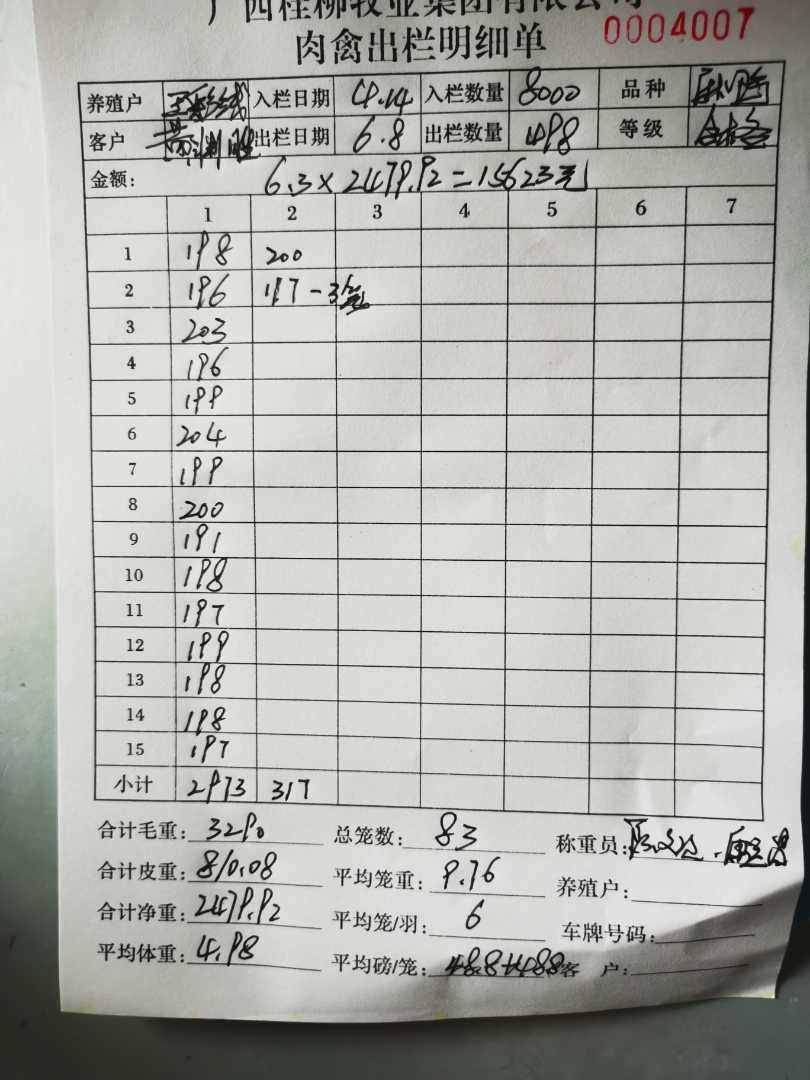 广西桂柳牧业集团有限公司
肉禽出栏明细单 0004007
养殖户 入栏日期 4.14 入栏数量 8000 品种
客户 出栏日期 6.8 出栏数量 498 等级
金额: 6.3×2479.92=15623元
1 2 3 4 5 6 7
1 198 200
2 196 117-3笼
3 203
4 196
5 199
6 204
7 199
8 200
9 191
10 198
11 197
12 199
13 198
14 198
15 197
小计 2973 317
合计毛重: 3290 总笼数: 83 称重员:
合计皮重: 810.08 平均笼重: 9.76 养殖户:
合计净重: 2479.92 平均笼/羽: 6 车牌号码:
平均体重: 4.98 平均磅/笼: 客 户: